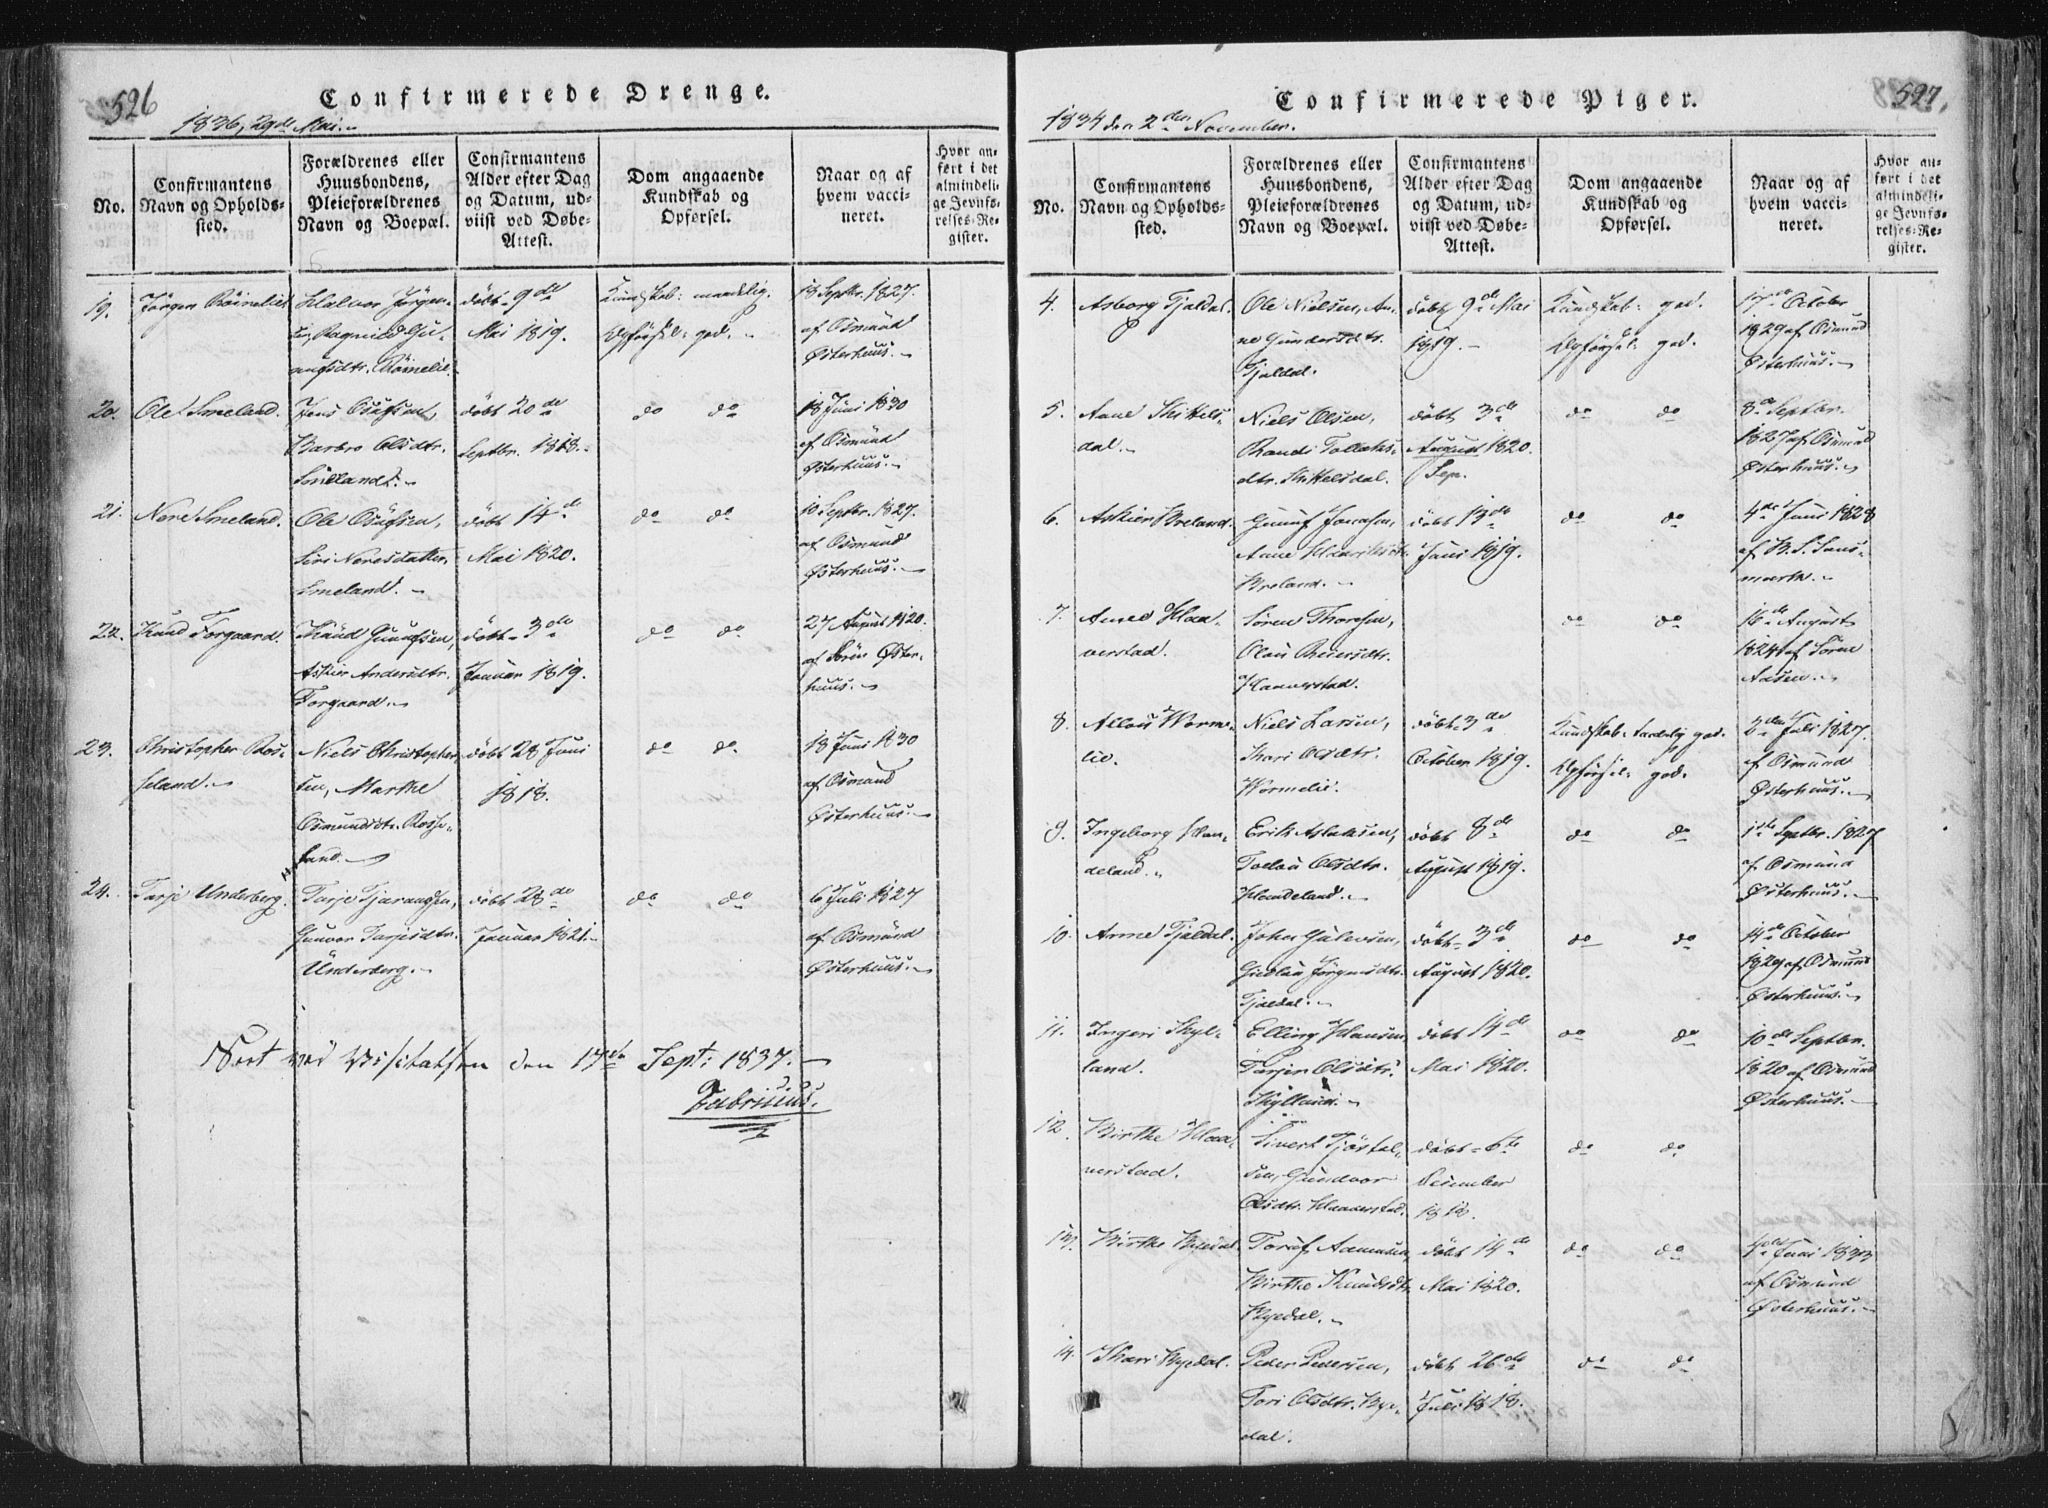 526
Confirmerede Drenge.
1836, 29de Mai.
No.
Confirmantens
Navn og Opholds-
sted.
Forældrenes eller
Huusbondens,
Pleieforældrenes
Navn og Boepæl.
Confirmantens
Alder efter Dag
og Datum, ud-
viist ved Døbe-
Attest.
Dom angaaende
Kundskab og
Opførsel.
Naar og af
hvem vacci-
neret.
Hvor an-
ført i det
almindeli-
ge Jevnfø-
relses-Re-
gister.
19.
Jörgen
Halvor Jörgen-
döbt 9de
Mai 1819.
Kundskab: maadelig.
Opförsel: god.
18 Septbr. 1827.
af Osmund
Østerhuus.
20.
Ole Smeland.
Barbro Olsdtr.
döbt 20de
Septbr. 1818.
do do
18 Juni 1830
af Osmund
Østerhuus.
21.
Nere Smeland.
Ole
Siri Neresdatter
Smeland.
döbt 14de
Mai 1820.
do do
10 Septbr. 1827.
af Osmund
Østerhuus.
22.
Knud Forgaard.
Knud Gunufsen,
Askier Andersdtr.
Forgaard.
döbt 3de
Januar 1819.
do do
27 August 1820.
af Sören Øster-
huus.
23.
Christopher Ros-
seland.
Niels Christopher-
sen, Marthe
Osmundsdtr. Rosse-
land.
döbt 28 Juni
1818.
do do
18 Juni 1830
af Osmund
Østerhuus.
24.
Tarje Underberg.
Tarje Tjarandsen,
Gunvor Tarjesdtr.
Underberg.
döbt 28de
Januar 1821.
do do
6 Juli 1827
af Osmund
Østerhuus.
Seet ved Visitatsen den 17de Sept: 1837.
Fabricius.
527.
Confirmerede Piger.
1834 den 2den November.
No.
Confirmantens
Navn og Opholds-
sted.
Forældrenes eller
Huusbondens,
Pleieforældrenes
Navn og Boepæl.
Confirmantens
Alder efter Dag
og Datum, ud-
viist ved Døbe-
Attest.
Dom angaaende
Kundskab og
Opførsel.
Naar og af
hvem vacci-
neret.
Hvor an-
ført i det
almindeli-
ge Jevnfø-
relses-Re-
gister.
4.
Asborg Tjaldal.
Ole Nielsen, An-
ne Gundersdtr.
Tjaldal.
döbt 9de Mai
1819.
Kundskab: god.
Opförsel: god.
17de October
1829 af Osmund
Østerhuus.
5.
Anne Skittels-
dal.
Niels Olsen,
Randi Tollaks-
dtr. Skittelsdal.
döbt 3de
August 1820.
Sep.
do do
8de Septbr.
1827 af Osmund
Østerhuus.
6.
Askier Breland.
Gunuf Jonassen,
Anne
Breland.
döbt 13de
Juni 1819.
do do
4de Juni 1828
af
7.
Anne Haa-
verstad.
Sören Thorsen,
Haaverstad.
do do
16de August
1824 af Sören
Aasen.
8.
Allou Worme-
lid.
Niels Larsen,
Kari Olsdtr.
Wormelid.
döbt 3de
October 1819.
Kundskab: temmelig god.
Opförsel: god.
2den Juli 1827.
af Osmund
Østerhuus.
9.
Ingeborg Haan-
deland.
Erik Aslaksen,
Tollou Olsdtr.
Haandeland.
döbt 8de
August 1819.
do do
1ste Septbr. 1827
af Osmund
Østerhuus.
10.
Anne Tjaldal.
John Gulovsen,
Gudlou Jörgensdtr.
Tjaldal.
döbt 3de
August 1820.
do do
14de October
1829 af Osmund
Østerhuus.
11.
Ingeri Skyl-
land.
Elling Hansen
Tarjer Olsdtr.
Skylland.
döbt 14de
Mai 1820.
do do
10de Septbr.
1820 af Osmund
Østerhuus.
12.
Birthe Haa-
verstad.
Sivert Tjöstel-
sen, Gundvor
Olsdtr. Haaverstad.
döbt 6te
December
1818.
do do
13.
Birthe Byedal.
Toruf Aanensen,
Birthe Knudsdtr.
Byedal.
döbt 14de
Mai 1820.
do do
Juni 1833
af Osmund
Østerhuus.
14.
Kari Byedal.
Peder Pedersen,
Tori Olsdtr. Bye-
dal.
döbt 26de
Juli 1818.
do do